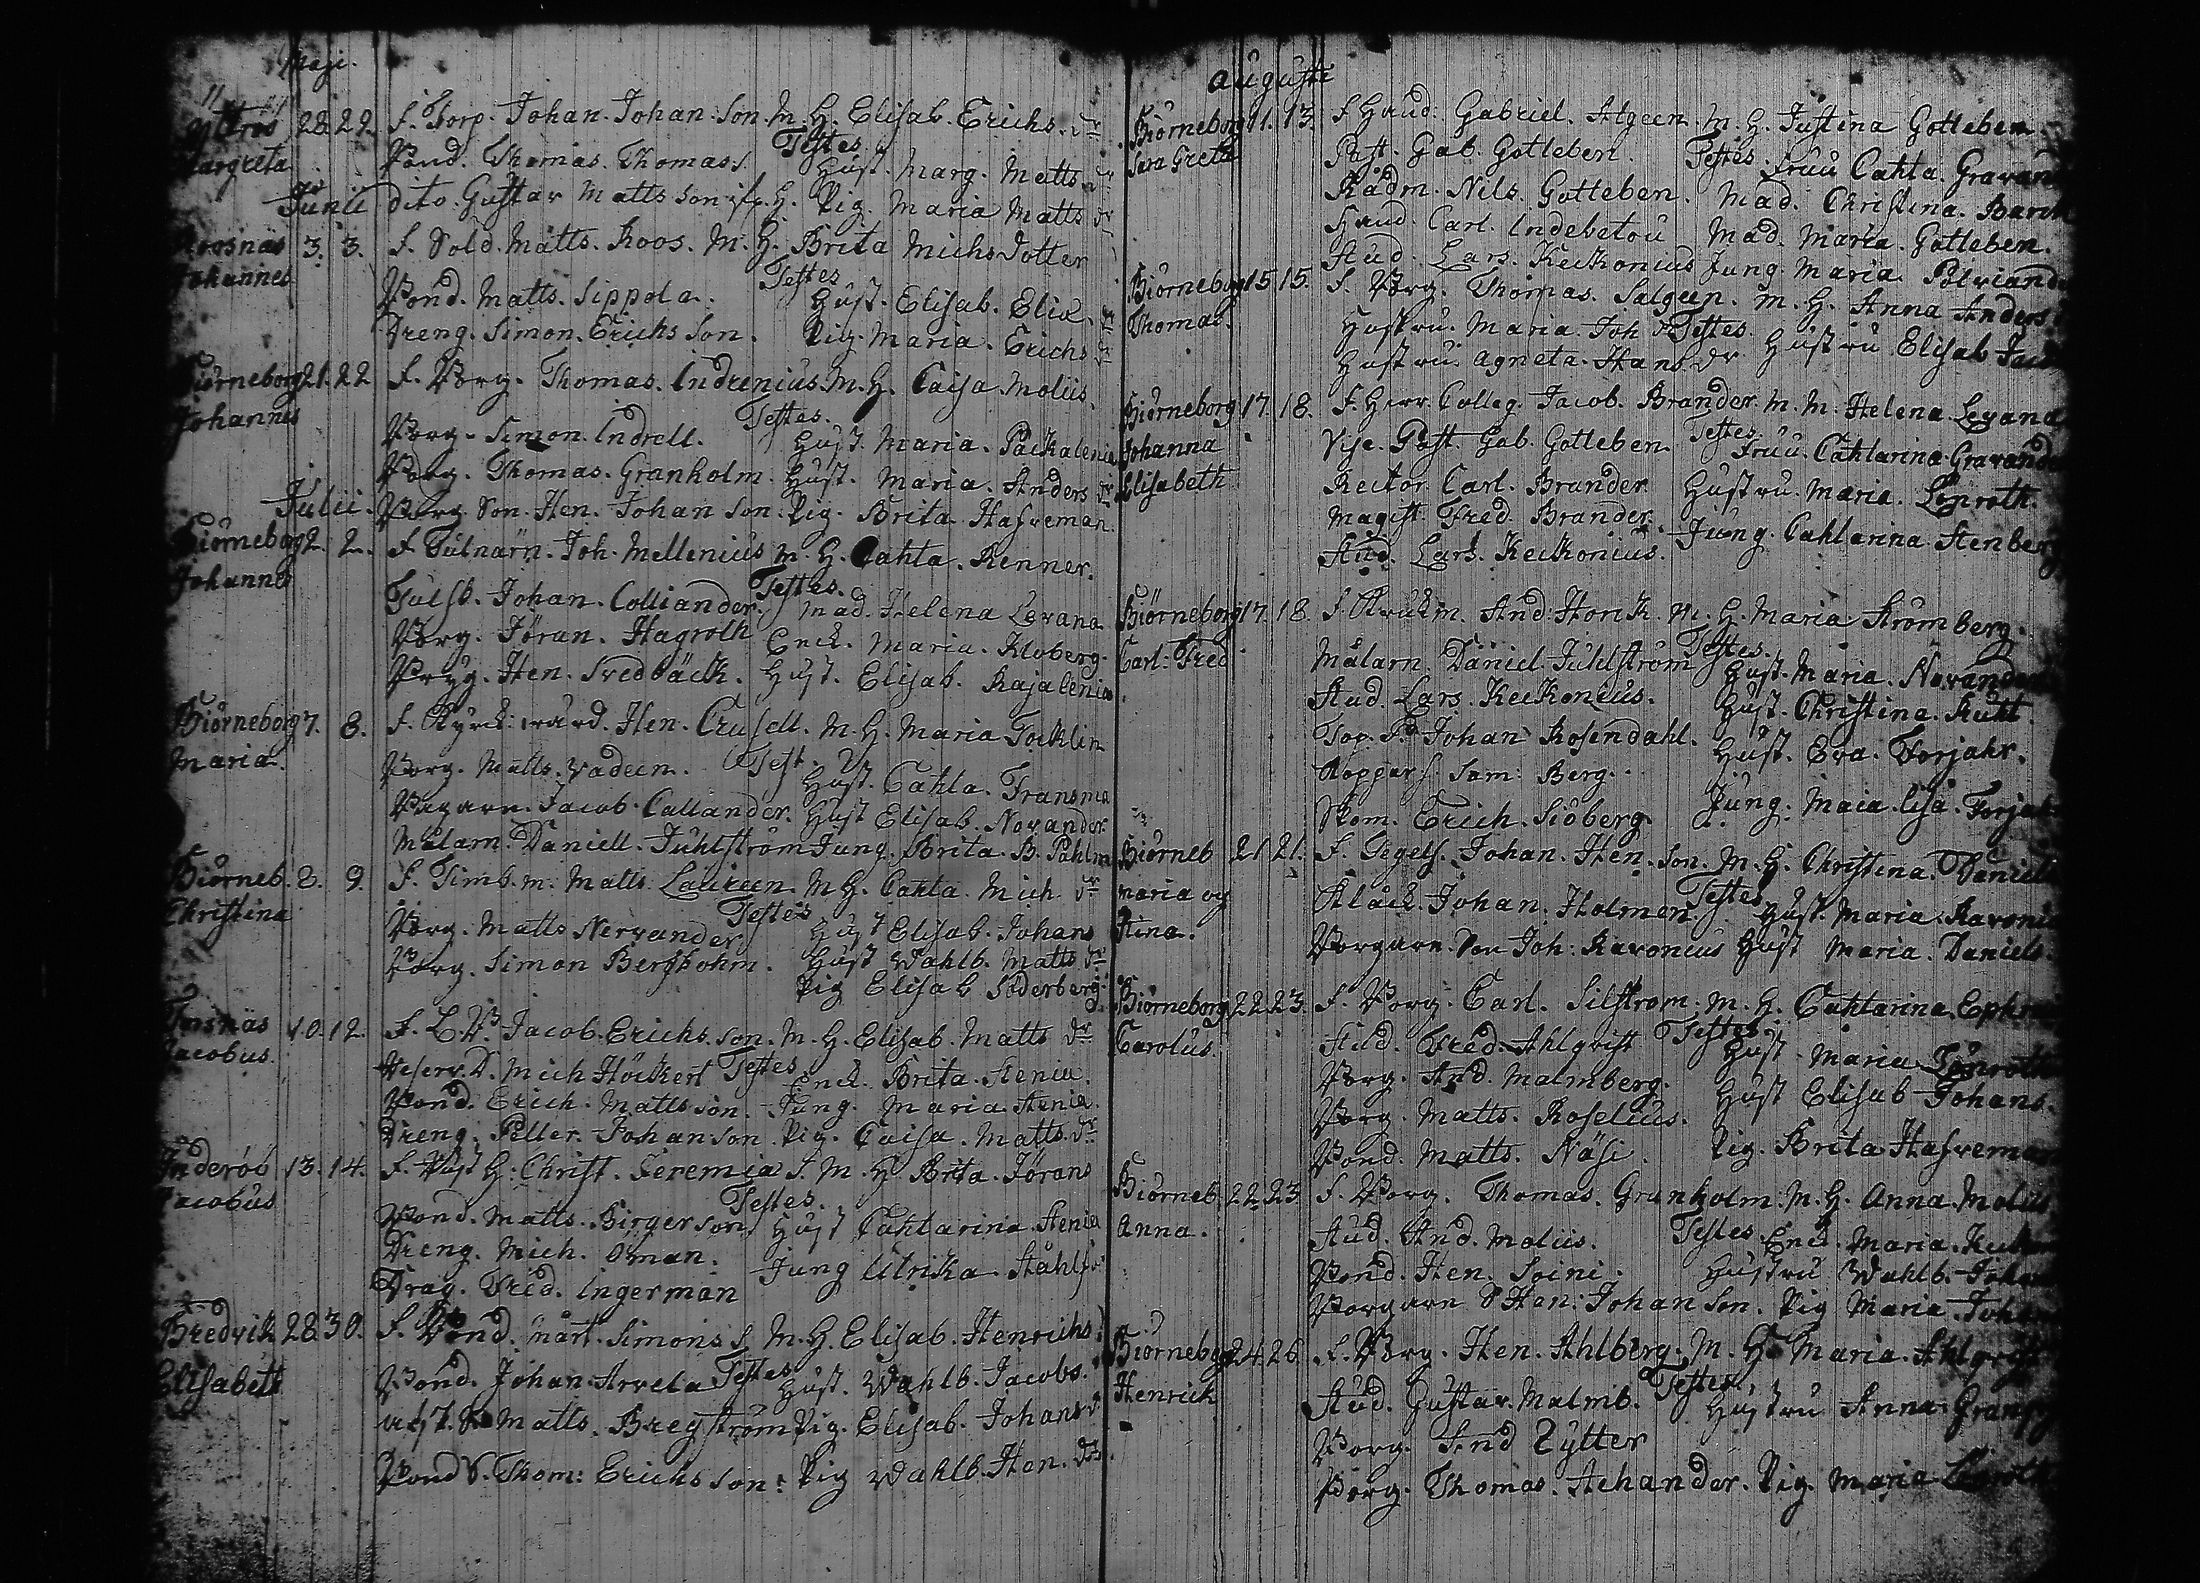 Maji.
Yttröö 28. 29. f. Torp. Johan Johan Son. M. H. Elisab. Erichs dr
Margreta Testes
Bond. Thomas. Thomas s. Hust. Marg. Matts dr
Junii dito. Gustav Matts son Pig. Maria Matts dr
Roosnäs 3. 3. f. Sold. Matts. Roos. M. H. Brita Michs Dotter
Johannes Testes
Bond. Matts. Sippola. Hust. Elisab. Eliæ dr
Dreng. Simon. Erichs Son. Pig. Maria. Erichs dr
Biörneborg 21. 22 f. Borg. Thomas. Indrenius. M. H. Caisa Moliis.
Johannes Testes.
Borg. Simon. Indrell. Hust. Maria. Packalenia
Borg. Thomas. Granholm. Hust. Maria. Anders dr
Julii. Borg. Son. Hen. Johan Son. Pig. Brita Hafreman.
Biörneborg 2. 2. f. Tulnärn. Joh. Mellenius M. H. Cahta. Renner.
Johannes Testes.
Tulsk. Johan. Colliander. Mad. Helena Levana
Borg. Jöran. Hagroth Enck. Maria. Kloberg.
Bryg. Hen. Svedbäck. Hust. Elisab. Kajalenia
Biörneborg 7. 8. f. Kyrck: wärd. Hen. Crusell. M. H. Maria Tocklin
Maria. Test.
Borg. Matts. Vadeen. Hust. Cahta. Fransma
Bagarn. Jacob. Callander. Hust Elisab. Novander.
Målarn. Daniell. Juhlström Jung. Brita. B. Pahlm
Biörneb. 8. 9. f. Timb. m. Matts Laureen. M H. Cahta. Mich. dr
Christina Testes
Borg. Matts Nervander Hust Elisab. Johans
Borg. Simon Bergbohm. Hust Wahlb. Matts dr
Pig Elisab Söderberg.
Innäs 10. 12. f. L. B. Jacob. Erichs. Son. M. H. Elisab Matts dr
Jacobus. Testes
Reserv. D. Mich Höckert Enck. Brita. Stenia.
Bond. Erich. Matts son. Jung. Maria Stenia.
Dreng. Petter. Johan son. Pig. Caisa. Matts. dr
Inderöö 13. 14. f. H. Christ. Jeremiæ S. M. H. Brita. Jörans
Jacobus Testes.
Bond. Matts. Birger son. Hust Cahtarina Stenia
Dreng. Mich. Öman. Jung Ulrika Ståhlf
Drag. Fred. Ingerman
Bredvik 28. 30. f. Bond. Mårt. Simons S. M. H. Elisab. Henrichs
Elisabett Testes
Bond. Johan. Arvela Hust. Wahlb. Jacobs.
Matts. Bregström Pig. Elisab. Johans
Bond S. Thom: Erichs son: Pig Wahlb. Hen. dr.
Augusti
Biörneborg 11. 13. f. Hand: Gabriel. Algeen. M. H. Justina Gotteben.
Sara Greta Past. Gab. Gotleben. Testes. Fruu Cahta. Gravand
Rådm. Nils. Gotteben. Mad. Christina. Barck
Hand. Carl. Indebetou Mad. Maria. Gotleben.
Stud. Lars. Keckonius Jung. Maria Polviand
Biörneborg 15 15. f. Borg. Thomas. Salgeen. M. H. Anna Anders
Thomas. Testes.
Hustru. Maria. Joh Hustru Elisab Jack
Hustru Agneta. Hans Dr
Biörneborg 17. 18. f. Herr. Colleg. Jacob. Brander. M. M. Helena Levana
Johanna Elisabeth Testes
Vise. Past. Gab. Gotleben. Fruu. Cahtarina Gravand
Rector. Carl. Brander Hustru. Maria. Lönroth.
Magist. Fred. Brander. Jung. Cahtarina Stenberg
Stud. Lars. Keckonius.
Biörneborg 17. 18. f. Kruckm. And: Horck. M. H. Maria Strömberg.
Carl. Fred Testes.
Målarn. Daniel. Juhlström Hust. Maria. Novander
Stud. Lars. Keckonius. Hust. Christina. Kuhl.
Johan Rosendahl. Hust. Eva. Forjahr.
Kopparsl. Sam: Berg. Jung. Maia Lisa. Forjah
Skom. Erich. Siöberg.
Biörneb 21 21. f. Tegels. Johan. Hen. Son. M. H. Christina. Daniels
Maria og Stina. Testes
Klåck. Johan. Holmen. Hust. Maria. Ravonia
Borgarn. Son Joh. Ravonius Hust Maria. Daniels.
Biörneborg 22 23. f. Borg. Carl. Silström. M. H. Cahtarina Ephrai
Carolus. Testes
Stud. Fred. Ahlqvist Hust. Maria Lönroth
Borg. And. Malmberg. Hust Elisab Johans.
Borg. Matts. Roselius.
Bond. Matts. Näsi. Pig. Brita Hafreman
Biörneb 22 23 f. Borg. Thomas. Granholm. M. H. Anna Moliis
Anna. Testes
Stud. And. Moliis. Enck. Maria.
Bond. Hen. Soini. Hustru Wahlb. Johan
Borgarn S Hen: Johan Son. Pig Maria Johan
Biörneborg 24. 26. f. Borg. Hen. Ahlberg. M. H. Maria. Ahlqvist
Henrich Testes.
Stud. Gustav. Malmb. Hustru Anna
Borg. And Zytter
Borg. Thomas. Achander. Pig. Maria Lönroth